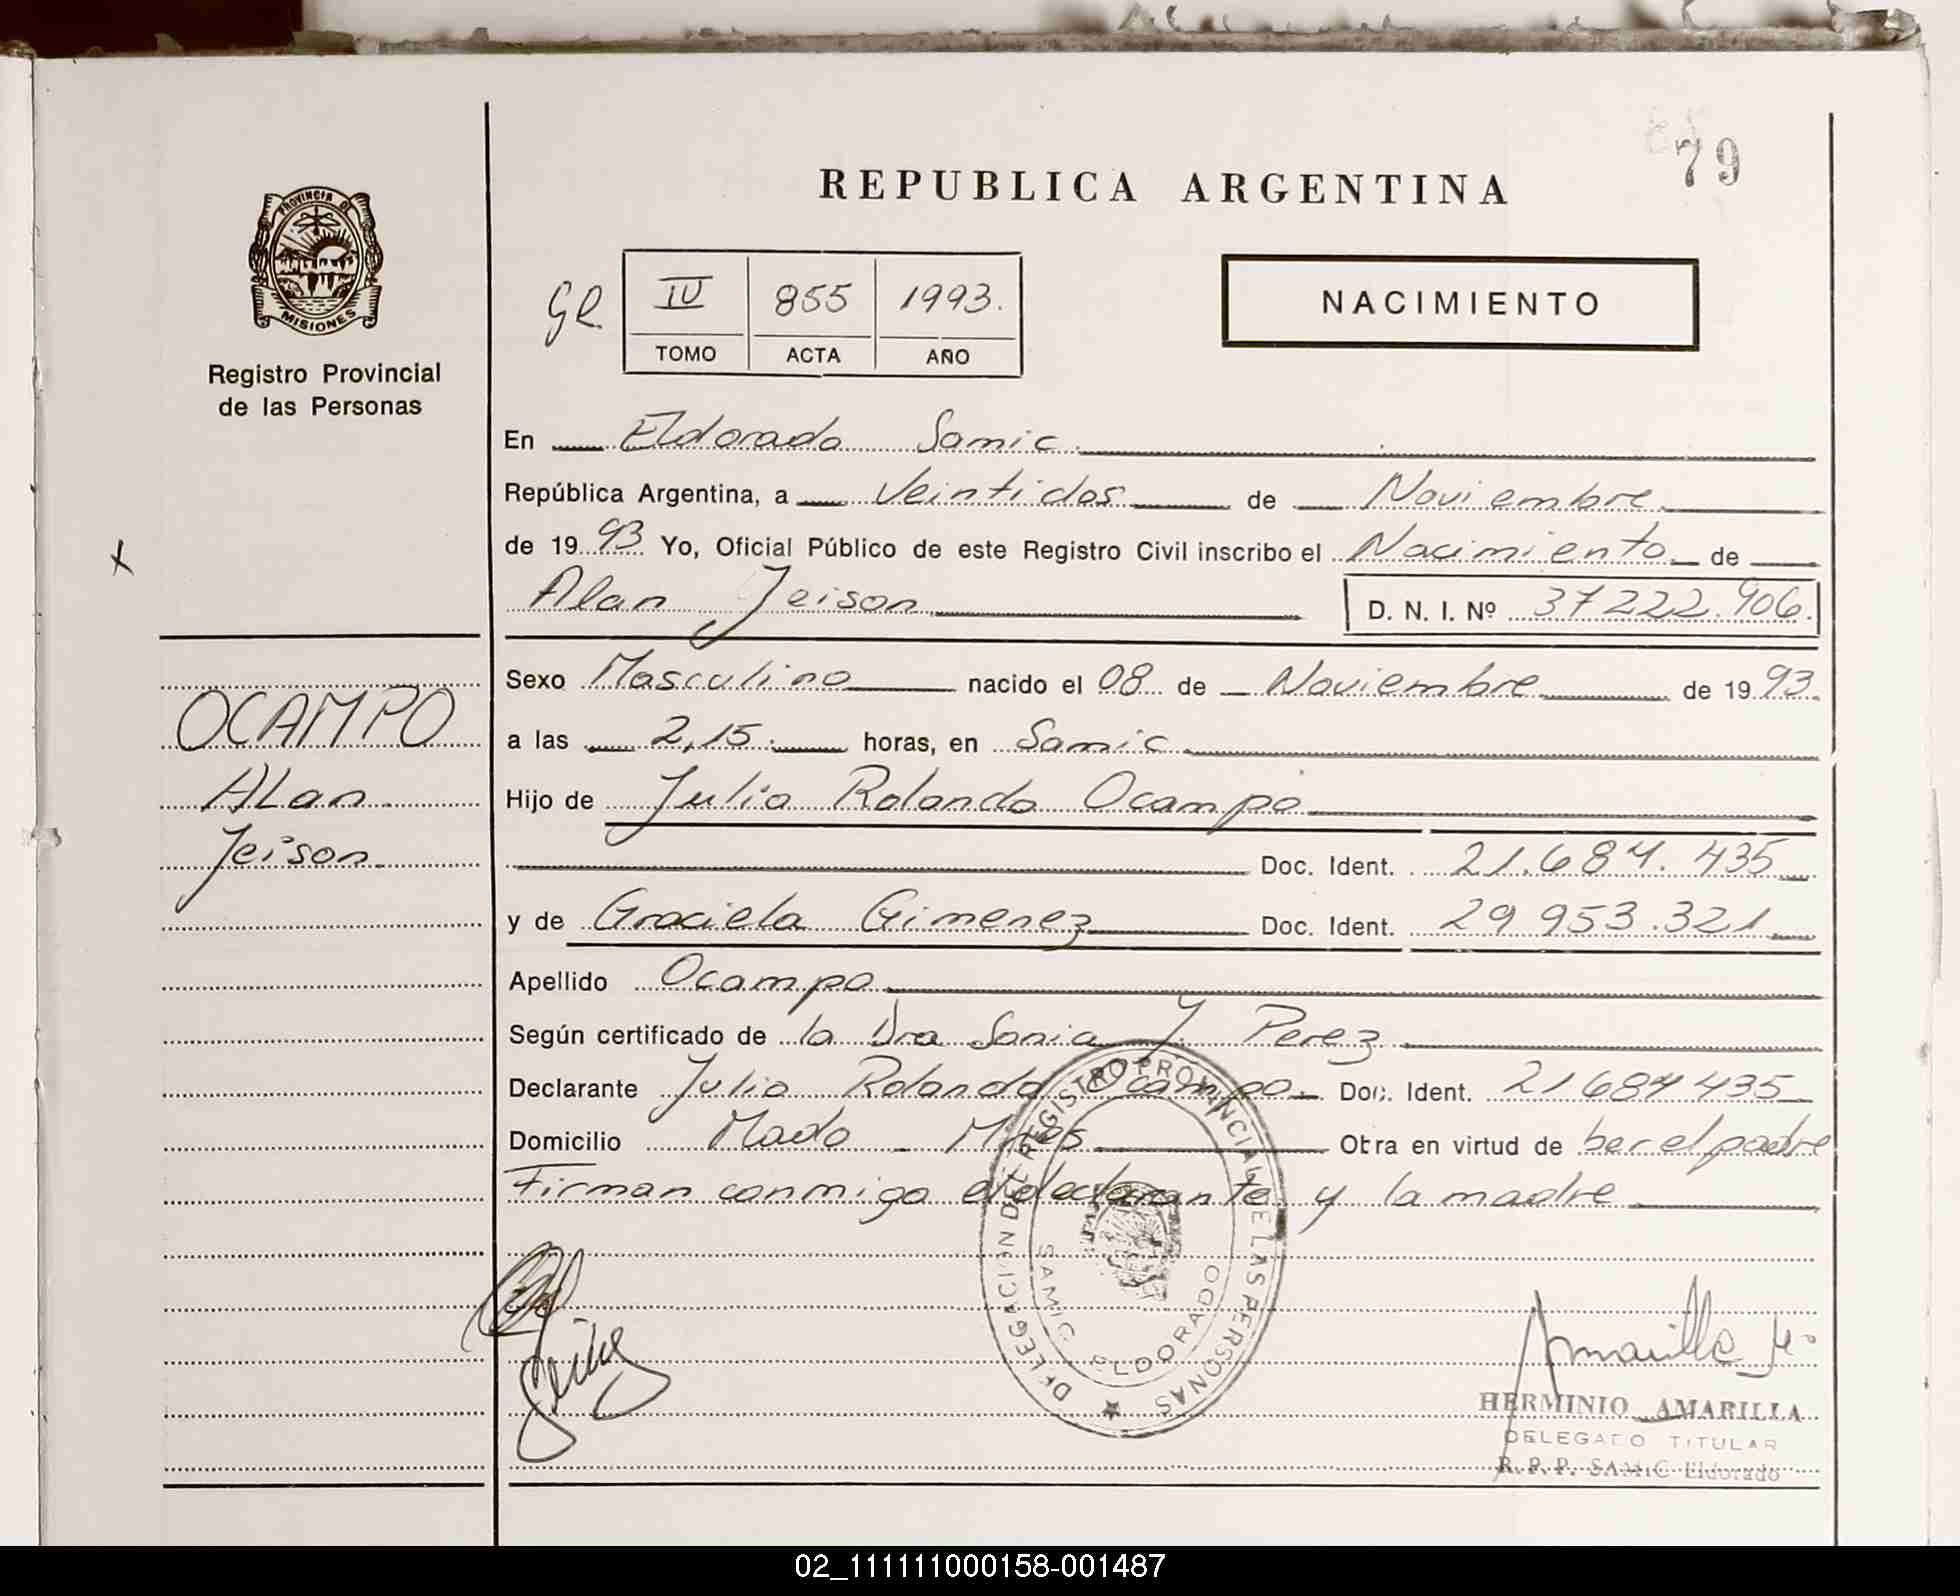 79
REPUBLICA ARGENTINA
PROVINCIA DE
MISIONES
Registro Provincial
de las Personas
IV 855 1993.
TOMO ACTA AÑO
NACIMIENTO
En Eldorado Samic
República Argentina, a Veintidos de Noviembre
de 1993 Yo, Oficial Público de este Registro Civil inscribo el Nacimiento de
Alan Jeison D. N. I. Nº 37222.906.
OCAMPO
Alan
Jeison
Sexo Masculino nacido el 08 de Noviembre de 1993.
a las 2,15 horas, en Samic
Hijo de Julio Rolando Ocampo
Doc. Ident. 21.684.435
y de Graciela Gimenez Doc. Ident. 29 953.321
Apellido Ocampo
Según certificado de la Dra Sonia Y. Perez
Declarante Julio Rolando Ocampo Doc. Ident. 21684435
Domicilio Mado Mnes Otra en virtud de ber el padre
Firman conmigo el declarante y la madre
DELEGACION DEL REGISTRO PROVINCIAL DE LAS PERSONAS
SAMIC ELDORADO
Amarilla H.
HERMINIO AMARILLA
DELEGADO TITULAR
R. P. P. SAMIC Eldorado
02_111111000158-001487